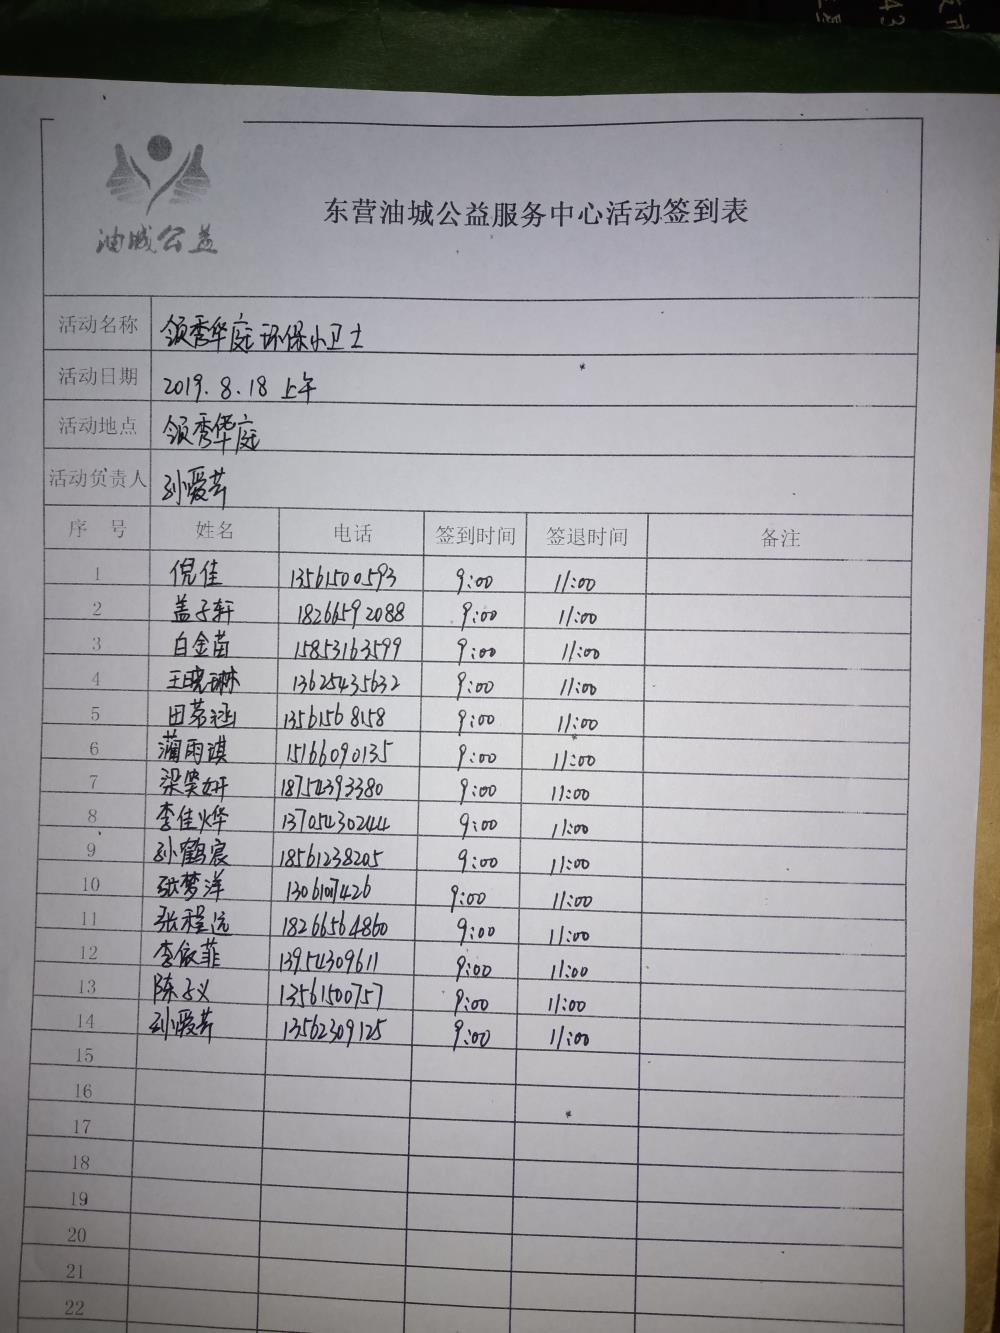 油城公益
东营油城公益服务中心活动签到表
活动名称 领秀华庭环保小卫士
活动日期 2019.8.18 上午
活动地点 领秀华庭
活动负责人 孙爱芹
序 号 姓名 电话 签到时间 签退时间 备注
1 倪佳 13561500593 9:00 11:00
2 盖子轩 18266592088 9:00 11:00
3 白金苗 15853163599 9:00 11:00
4 王晓琳 13625435632 9:00 11:00
5 田茗涵 13561568158 9:00 11:00
6 蔺雨琪 15166090135 9:00 11:00
7 梁笑妍 18754393380 9:00 11:00
8 李佳烨 13705430244 9:00 11:00
9 孙鹤宸 18561238205 9:00 11:00
10 张梦洋 9:00 11:00
11 张程远 18266564860 9:00 11:00
12 李依菲 13954309611 9:00 11:00
13 陈子义 13561500757 9:00 11:00
14 孙爱芹 13562309125 9:00 11:00
15
16
17
18
19
20
21
22